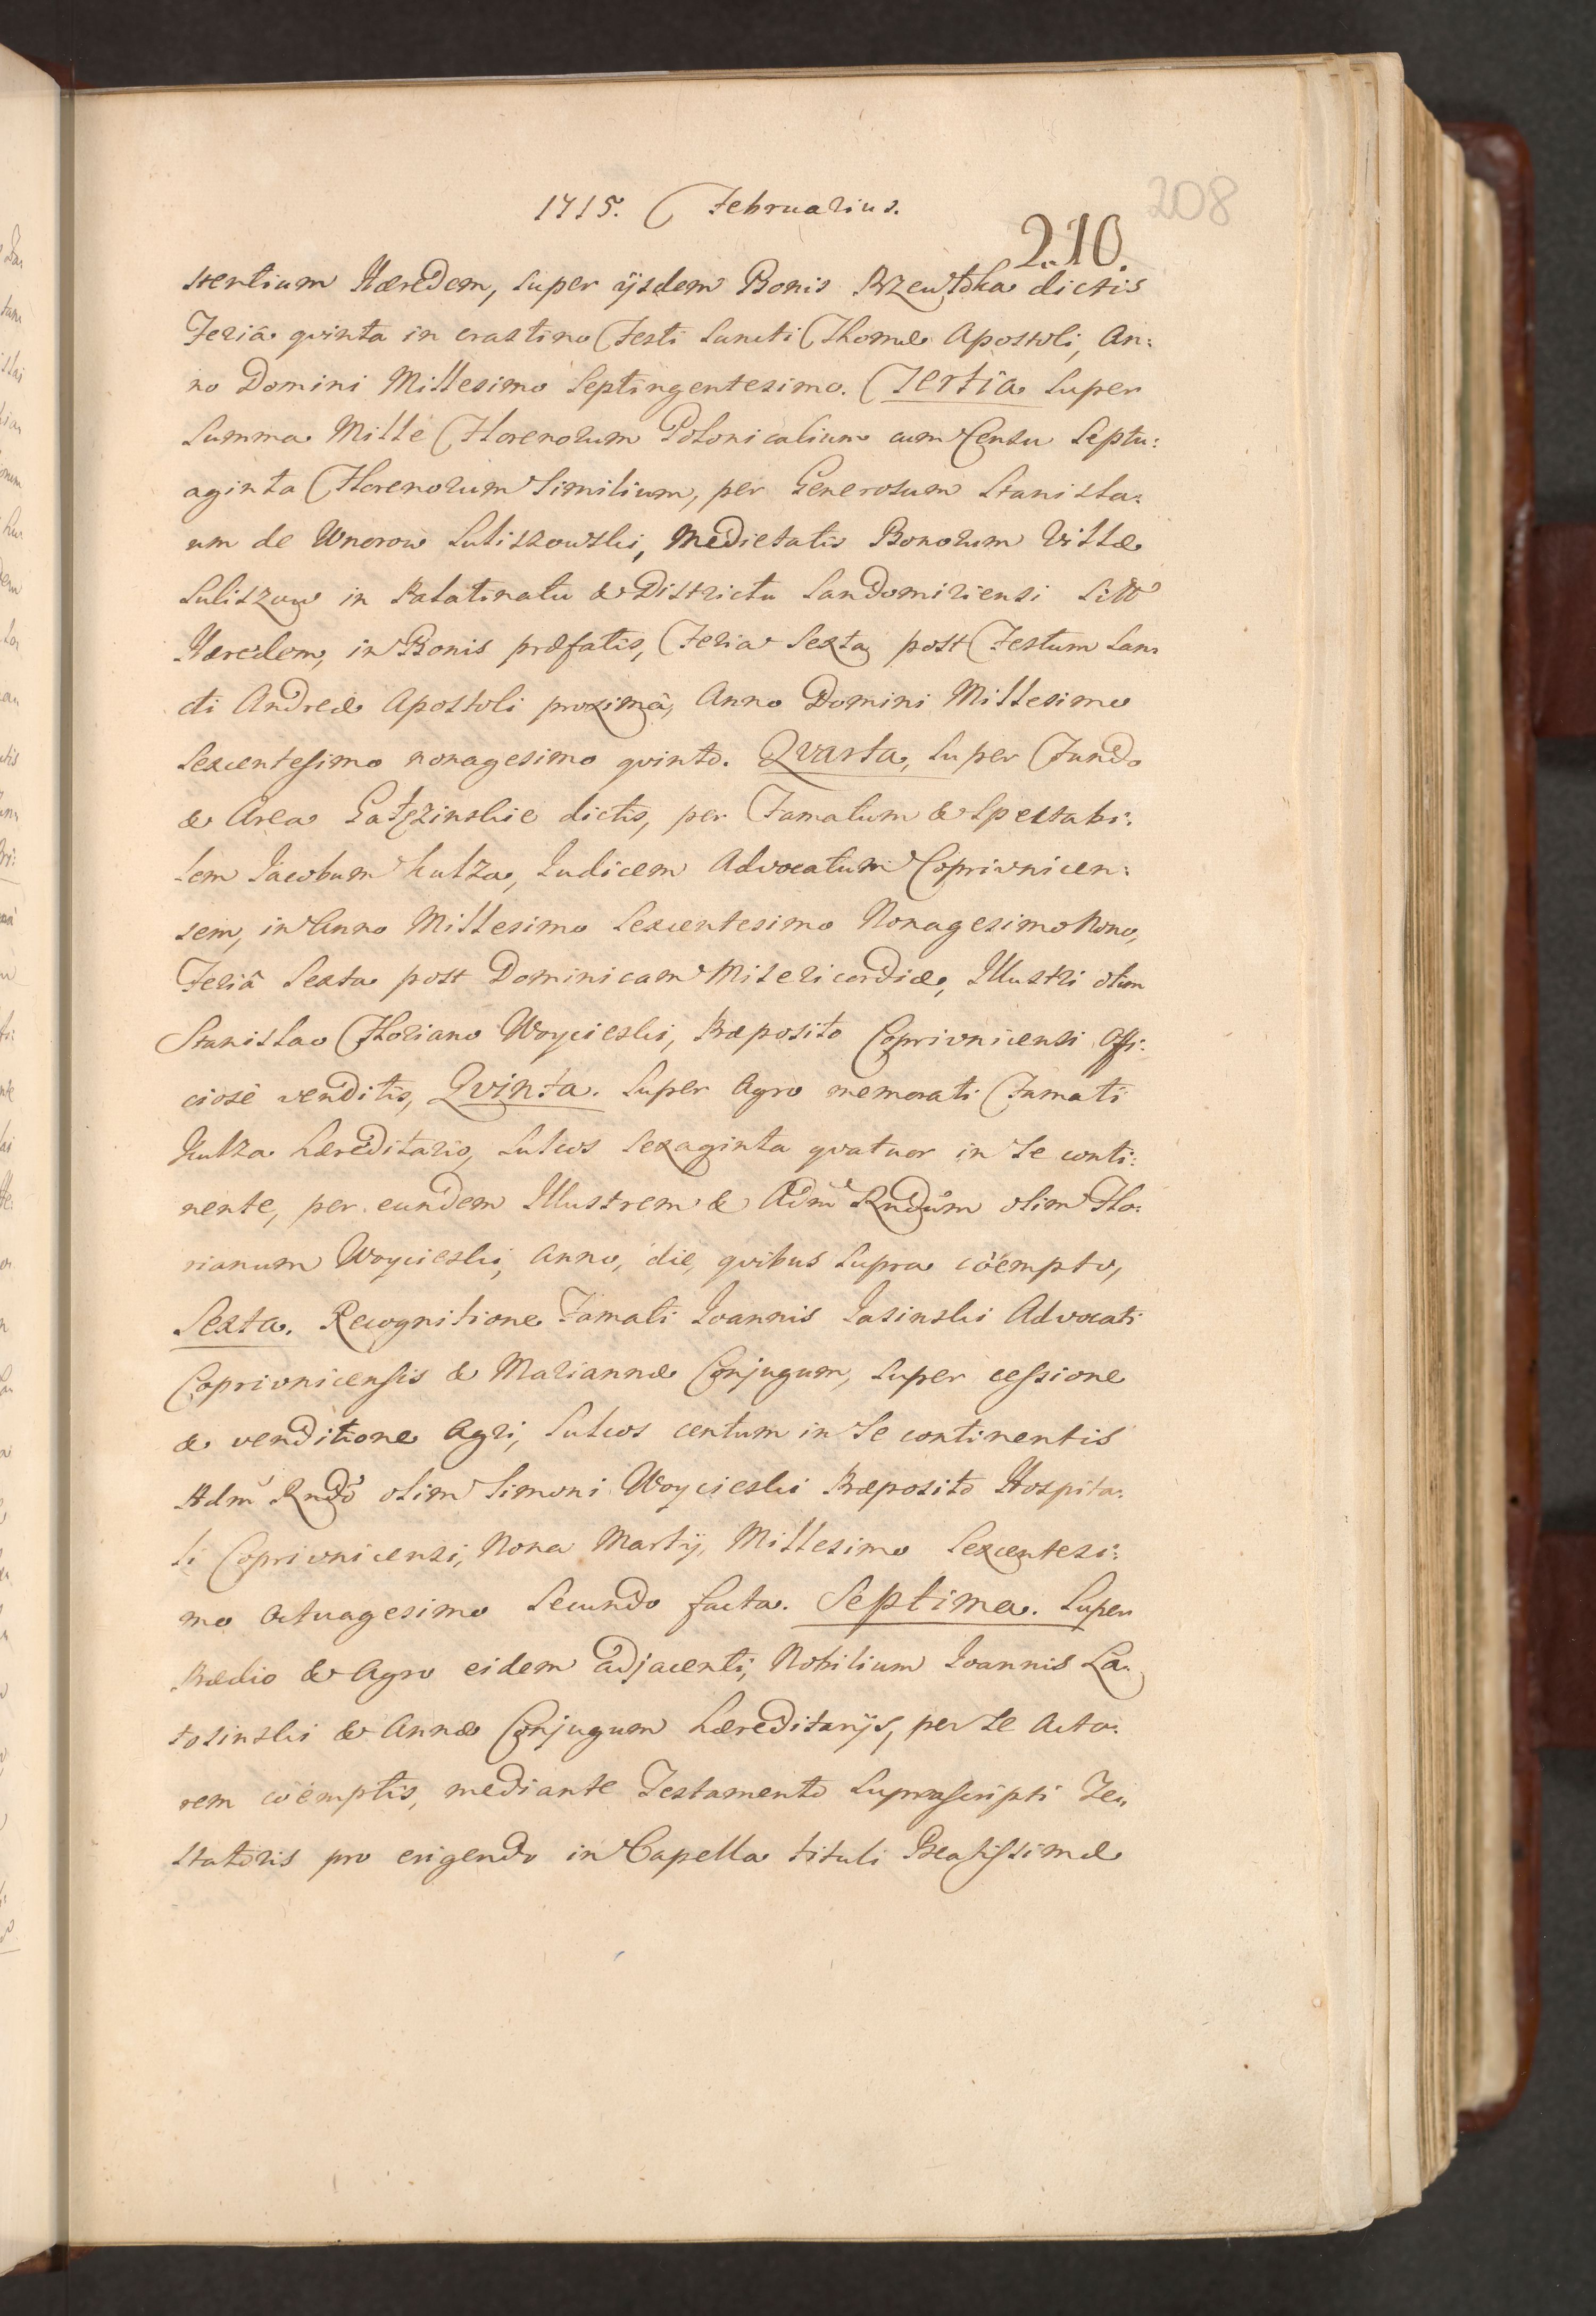 208
1715. Februarius.
210.
stentium Hæredem, super ijsdem Bonis Rzewtha dictis
Feriâ qvinta in crastino Festi Sancti Thomæ Apostoli, An:
no Domini Millesimo Septingentesimo. Tertia super
Summa Mille Florenorum Polonicalium cum Censu Septu:
aginta Florenorum Similium, per Generosum Stanisla:
um de Wnorow Suliszowski, Medietatis Bonorum Villæ
Suliszow in Palatinatu & Districtu Sandomiriensi
Hæredem, in Bonis præfatis, Feria Sexta post Festum San:
cti Andreæ Apostoli proximâ, Anno Domini Millesimo
Sexcentesimo nonagesimo qvinto. Qvarta, Super Fundo
& Area dictis, per Famatum & Spectabi:
lem Jacobum Kulza, Judicem Advocatum Coprivnicen:
sem, in Anno Millesimo Sexcentesimo Nonagesimo Nono,
Feriâ Sexta post Dominicam Misericordiæ, Illustri olim
Stanislao Floriano Woycieski, Præposito Coprivnicensi Offi:
ciosè venditis, Qvinta. Super Agro memorati Famati
Kulza hæreditario, Sulcos Sexaginta qvatuor in Se conti:
nente, per eundem Illustrem & Adm̃ Rndũm olim Flo:
rianum Woycieski, anno, die, qvibus Supra coëmpto,
Sexta. Recognitione Famati Joannis Jasinski Advocati
Coprivnicensis & Mariannæ Conjugum, Super cessione
& venditione Agri, Sulcos centum in Se continentis
Adm̃ Rndõ olim Simoni Woycieski Præposito Hospita:
li Coprivnicensi, Nona Martij, Millesimo Sexcentesi:
mo Octuagesimo Secundo facta. Septima. Super
Prædio & Agro eidem adjacenti, Nobilium Joannis La:
tosinski & Annæ Conjugum hæreditarijs, per Se Acto:
rem coëmptis, mediante Testamento Suprascripti Te:
statoris pro erigendo in Capella tituli Beatissimæ